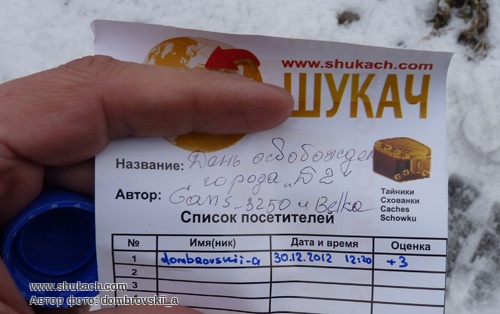 www.shukach.com
ШУКАЧ
Название: День освобожден
города „Б2"
Автор: Gans-3250 и Belka
Тайники
Сховки
Caches
Schowku
Список посетителей
№ Имя(ник) Дата и время Оценка
1 dombrovskii-a 30.12.2012 12:20 +3
2
3
4
www.shukach.com
Автор фото: dombrovskii_a